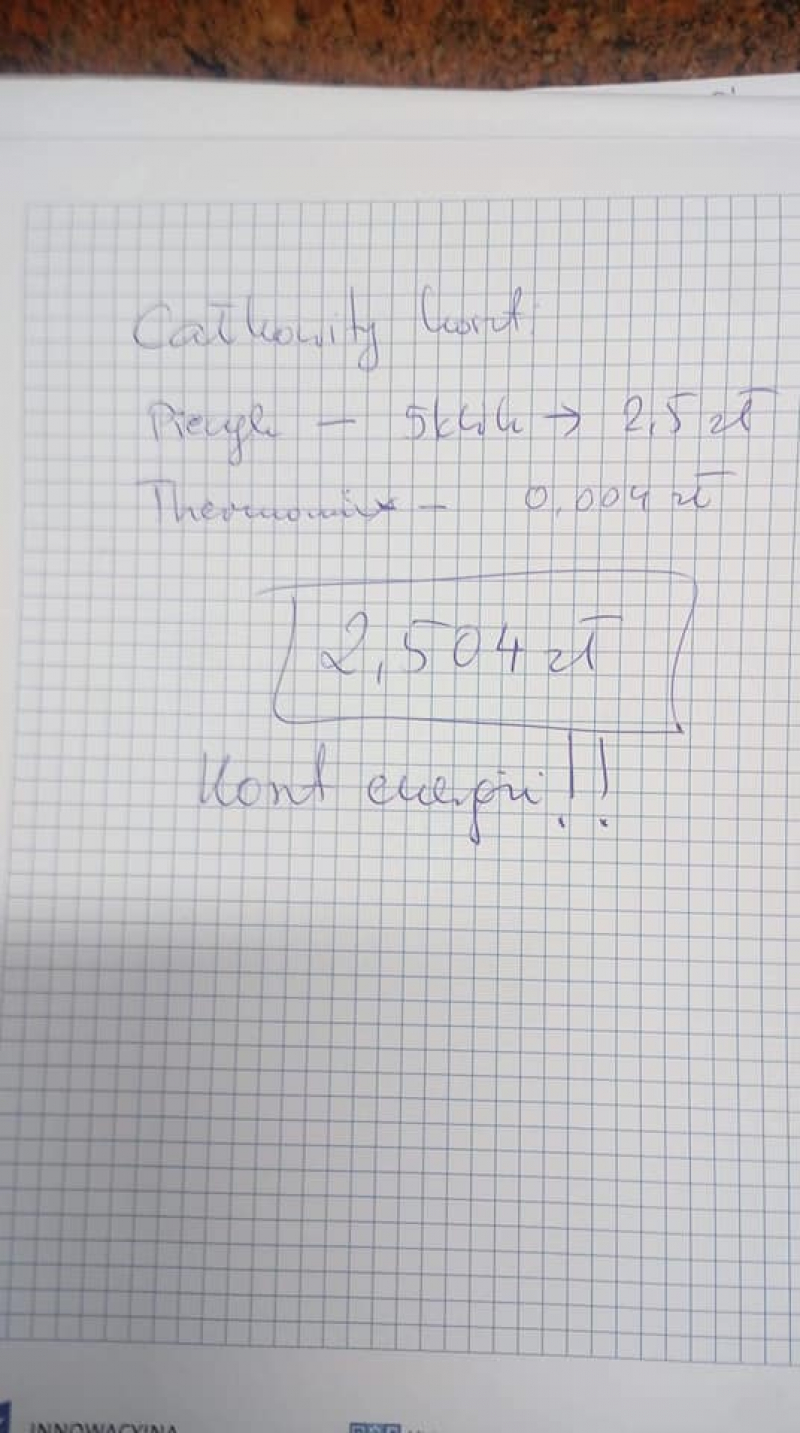 Całkowity koszt:
Piecyk – 5kWh → 2,5 zł
Thermomix – 0,004 zł
2,504 zł
Koszt energii!!
INNOWACYJNA